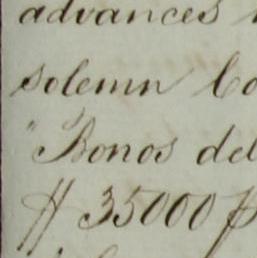 advances
solemn Co
"Bonos del
$ 35000 p